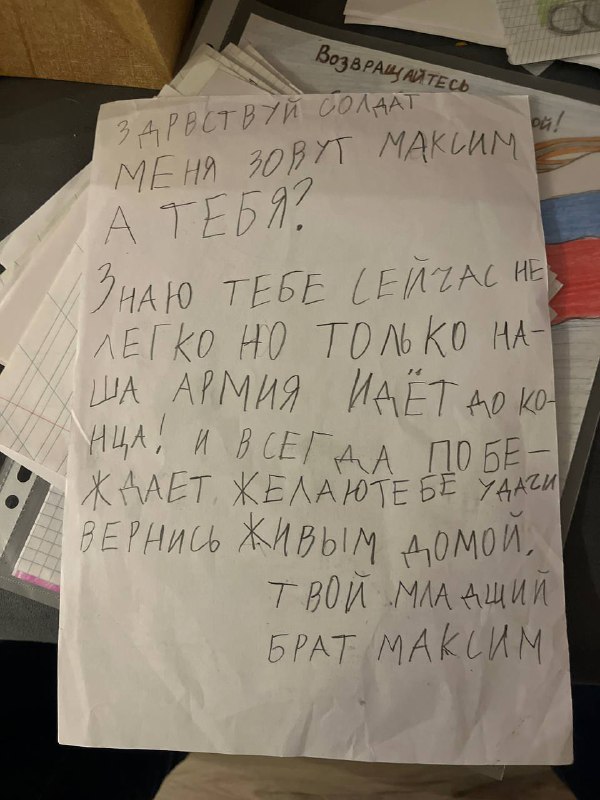 ВОЗВРАЩАЙТЕСЬ
ой!
ЗДРВСТВУЙ СОЛДАТ
МЕНЯ ЗОВУТ МАКСИМ
А ТЕБЯ?
ЗНАЮ ТЕБЕ СЕЙЧАС НЕ
ЛЕГКО НО ТОЛЬКО НА-
ША АРМИЯ ИДЁТ ДО КО-
НЦА! И ВСЕГДА ПОБЕ-
ЖДАЕТ. ЖЕЛАЮТЕБЕ УДАЧИ
ВЕРНИСЬ ЖИВЫМ ДОМОЙ.
ТВОЙ МЛАДШИЙ
БРАТ МАКСИМ